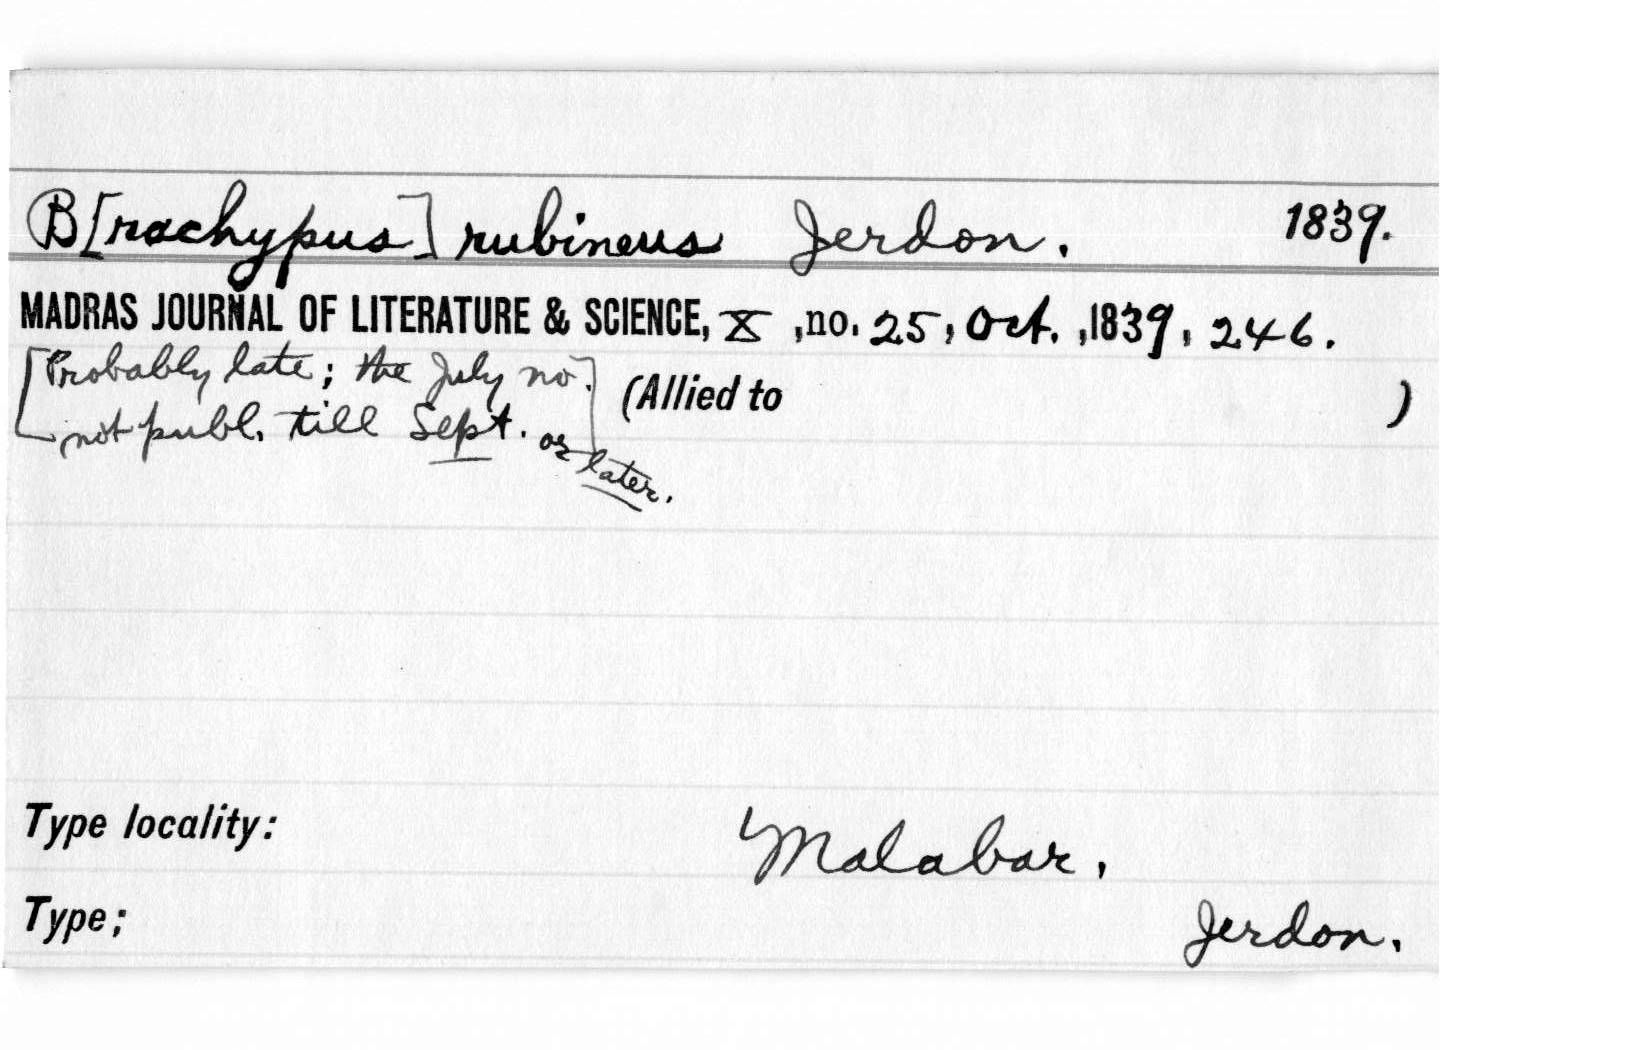 B[rachypus] rubineus Jerdon. 1839.
MADRAS JOURNAL OF LITERATURE & SCIENCE, X , no. 25, Oct. ,1839, 246.
[Probably late; the July no.
not publ. till Sept. or later.] (Allied to )
Type locality: Malabar.
Type; Jerdon.